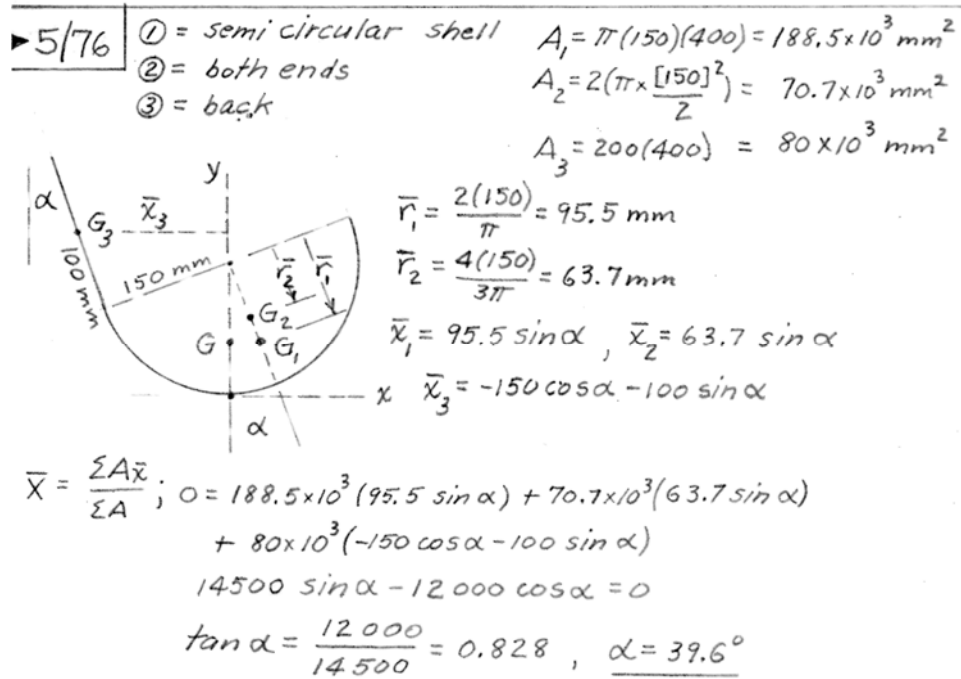 ▶5/76
① = semi circular shell
② = both ends
③ = back
A₁ = π(150)(400) = 188.5×10³ mm²
A₂ = 2(π×[150]²/2) = 70.7×10³ mm²
A₃ = 200(400) = 80×10³ mm²
y
α
G₃
x̄₃
100 mm
150 mm
r̄₂
r̄₁
G₂
G
G₁
x
α
r̄₁ = 2(150)/π = 95.5 mm
r̄₂ = 4(150)/3π = 63.7 mm
x̄₁ = 95.5 sin α , x̄₂ = 63.7 sin α
x̄₃ = -150 cos α - 100 sin α
X̄ = ΣAx̄/ΣA ; 0 = 188.5×10³ (95.5 sin α) + 70.7×10³ (63.7 sin α)
+ 80×10³ (-150 cos α - 100 sin α)
14500 sin α - 12 000 cos α = 0
tan α = 12 000/14 500 = 0.828 , α = 39.6°